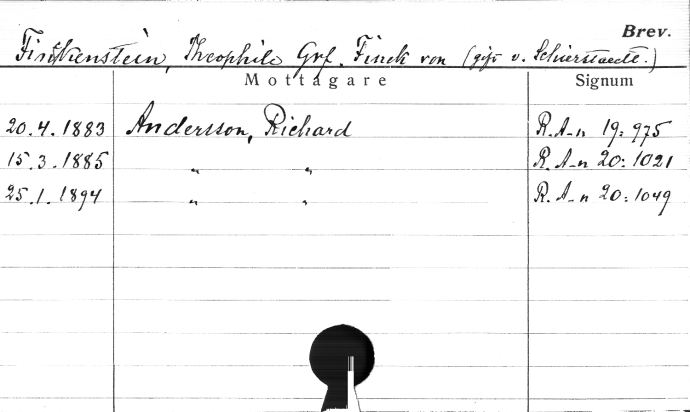 Brev.
Finckenstein, Theophile Grf. Finck von (gift v. Schierstaedt.)
Mottagare Signum
20.4.1883 Andersson, Richard R.A-n 19:975
15.3.1885 " " R.A-n 20:1021
25.1.1894 " " R.A-n 20:1049